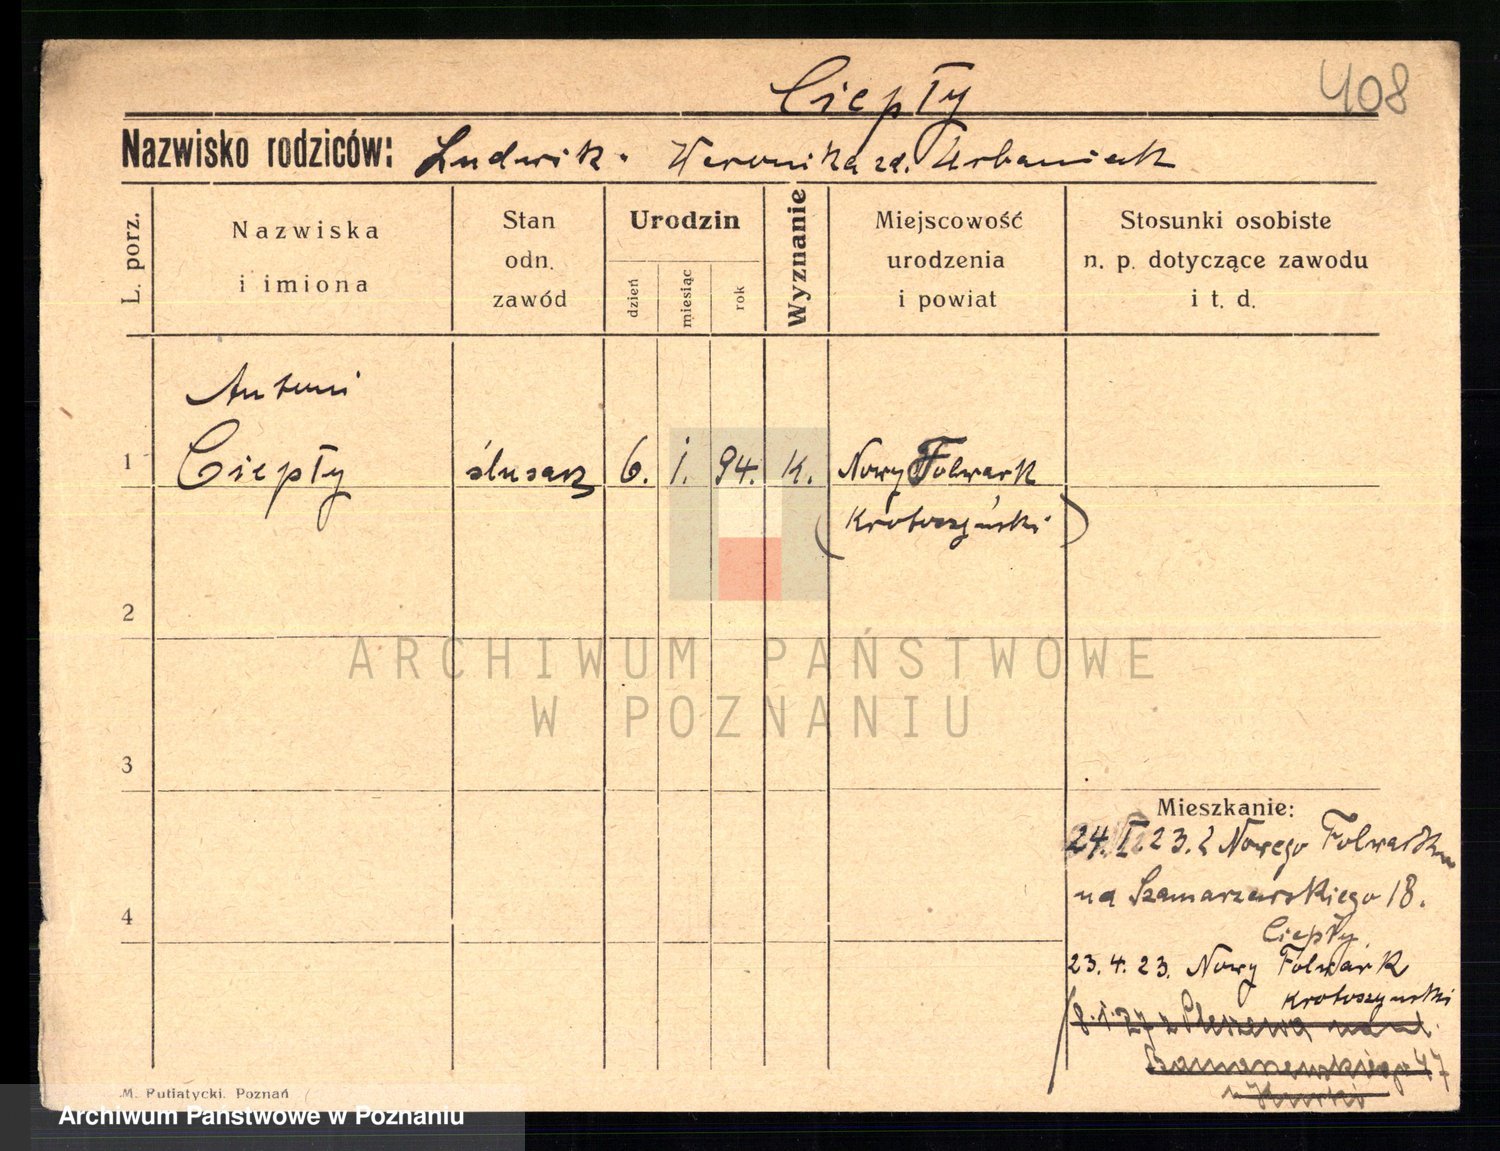 Ciepły
408
Nazwisko rodziców: Ludwik. Weronika zd. Urbaniak
L. porz.
Nazwiska
i imiona
Stan
odn.
zawód
Urodzin
dzień
miesiąc
rok
Wyznanie
Miejscowość
urodzenia
i powiat
Stosunki osobiste
n. p. dotyczące zawodu
i t. d.
Antoni
1 Ciepły ślusarz 6. 1. 94. K. Nowy Folwark
(Krotoszyński)
2
ARCHIWUM PAŃSTWOWE
W POZNANIU
3
Mieszkanie:
24. 23. z Nowego Folwarku
na Szamarzewskiego 18.
4
Ciepły
23.4.23. Nowy Folwark
Krotoszyński
8.1.27 z Pleszewa
47
M. Putiatycki. Poznań
Archiwum Państwowe w Poznaniu